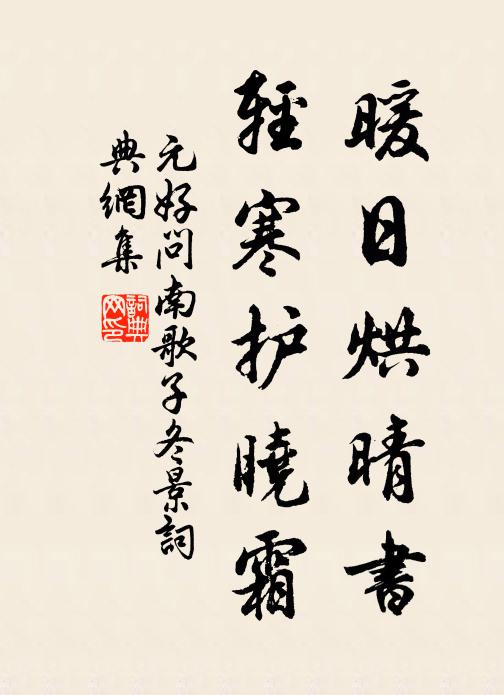 暖日烘晴書
輕寒护曉霜
元好问南歌子冬景詞
典網集
詞典网印